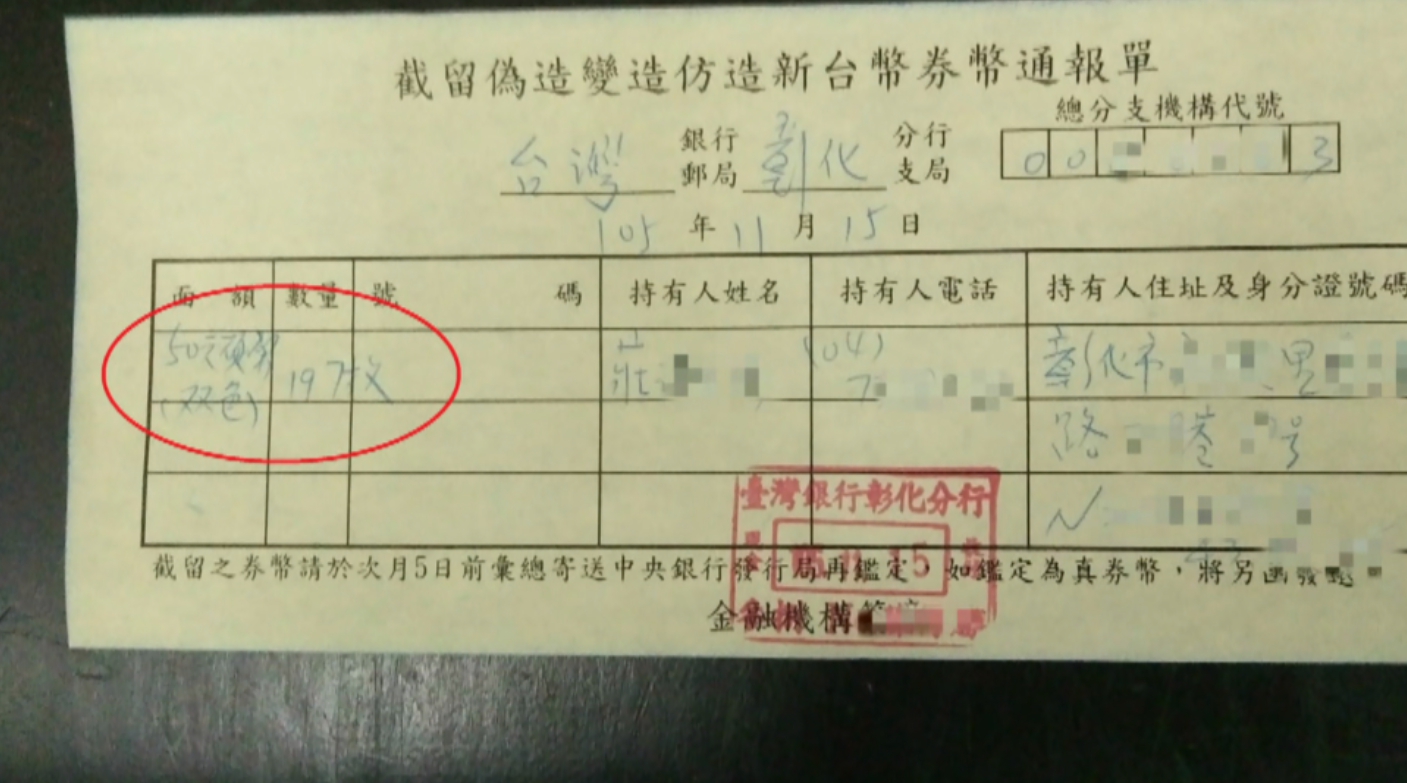 截留偽造變造仿造新台幣券幣通報單
總分支機構代號
台灣 銀行 郵局 彰化 分行 支局
00 3
105 年 11 月 15 日
面 額 數量 號 碼 持有人姓名 持有人電話 持有人住址及身分證號碼
50元 (双色) 197枚 莊 (04) 7 彰化市 里
路 號
N
臺灣銀行彰化分行
截留之券幣請於次月5日前彙總寄送中央銀行發行局再鑑定,如鑑定為真券幣,將另函發還
金融機構